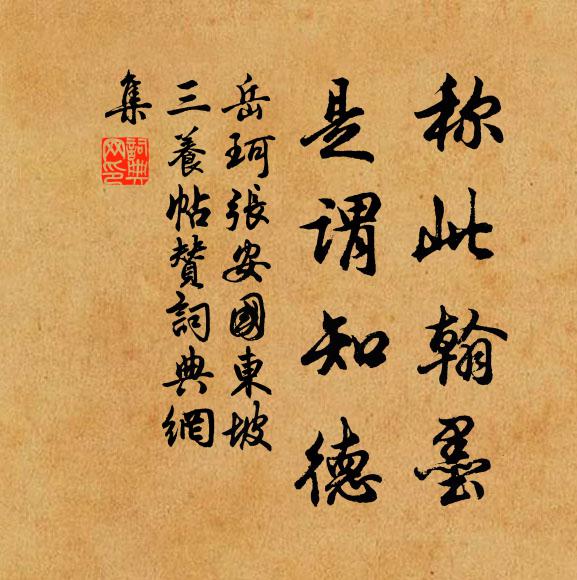 称此翰墨
是谓知德
岳珂張安國東坡
三養帖赞詞典網
集
詞典網印